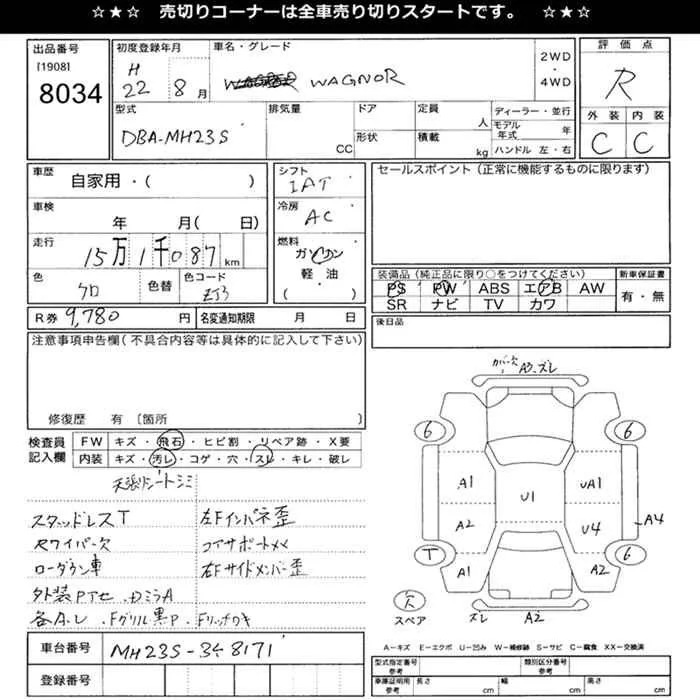 ☆★☆ 売切りコーナーは全車売り切りスタートです。 ☆★☆
出品番号
[1908]
8034
初度登録年月
H
22 8月
車名・グレード
WAGNOR
2WD
・
4WD
評価点
R
外装 内装
C C
型式
DBA-MH23S
排気量
CC
ドア
形状
定員
人
積載
kg
ディーラー・並行
モデル年式 年
ハンドル 左・右
車歴
自家用・( )
車検
年 月( 日)
走行
15万1千087km
色
クロ
色替
色コード
ZJ3
シフト
IAT
冷房
AC
燃料
ガソリン
軽・油
・( )
セールスポイント(正常に機能するものに限ります)
装備品(純正品に限り○をつけてください)
PS PW ABS エアB AW
SR ナビ TV カワ
新車保証書
有・無
R券 9,780 円
名変通知期限 月 日
後日品
注意事項申告欄(不具合内容等は具体的に記入して下さい)
修復歴 有 [箇所 ]
検査員
記入欄
FW キズ・飛石・ヒビ割・リペア跡・X要
内装 キズ・汚レ・コゲ・穴・スレ・キレ・破レ
天張りシートシミ
スタッドレスT
左Fインパネ歪
Rワイパー欠
コアサポートメメ
ローダウン車
右Fサイドメンバー歪
外装PTセ、DミラA
各A.レ、Fグリル黒P、Fリップワキ
車台番号
MH23S-348171
登録番号
カバー欠 A3.ズレ
6 6
A1 UA1
U1
A2 U4 A4
T 6
A1 A2
欠
スペア
ズレ A2
A-キズ E-エクボ U-凹み W-補修跡 S-サビ C-腐食 XX-交換済
型式指定番号
参考
類別区分番号
参考
車庫証明用
参考
長さ cm
幅 cm
高さ cm